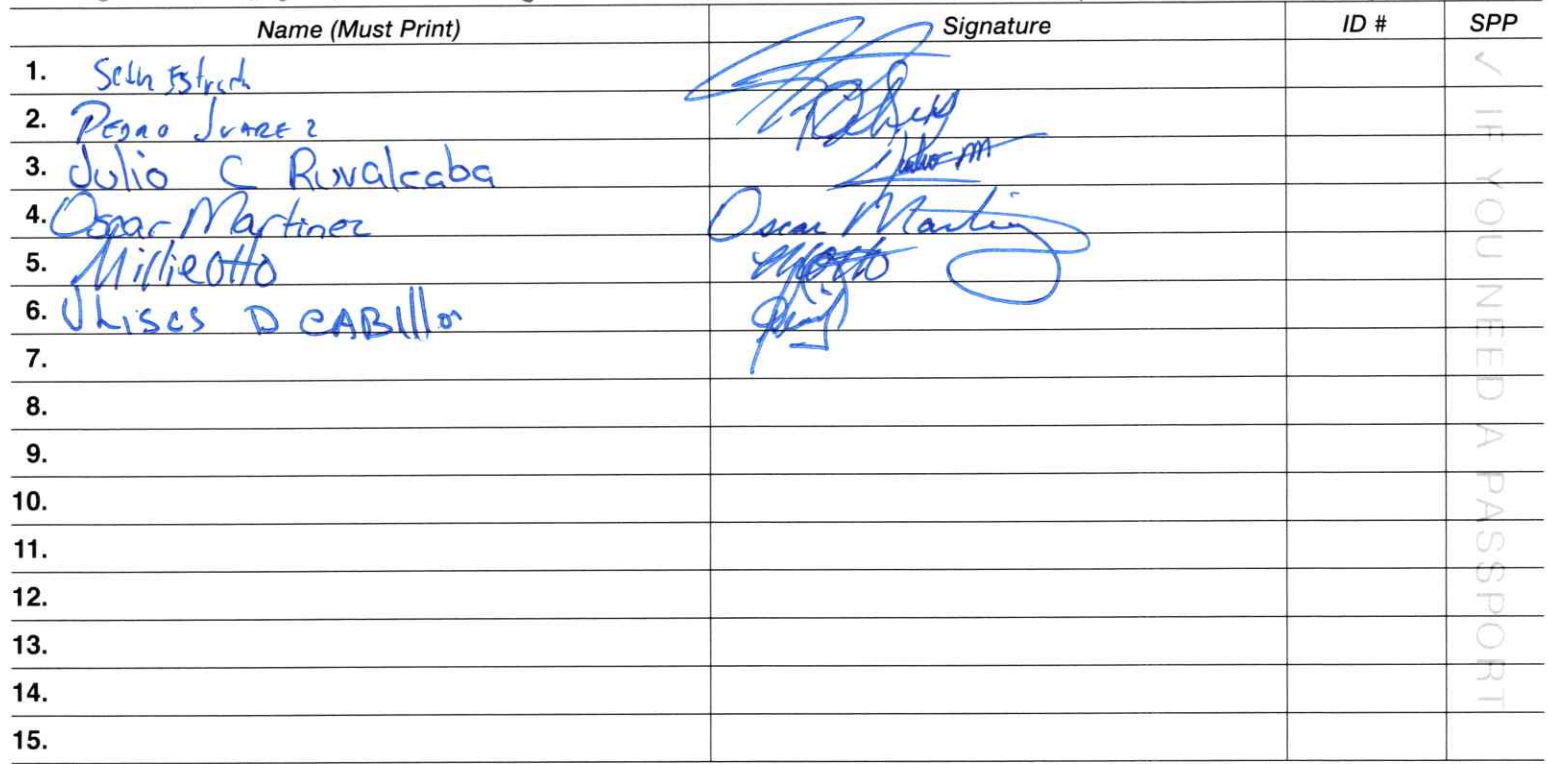 Name (Must Print) Signature ID # SPP
1. Seth Estrada
2. PEDRO JUAREZ
3. Julio C Ruvalcaba
4. Oscar Martinez Oscar Martinez
5. Millie Otto MOtto
6. Ulises D CABIllo
7.
8.
9.
10.
11.
12.
13.
14.
15.
✓ IF YOU NEED A PASSPORT